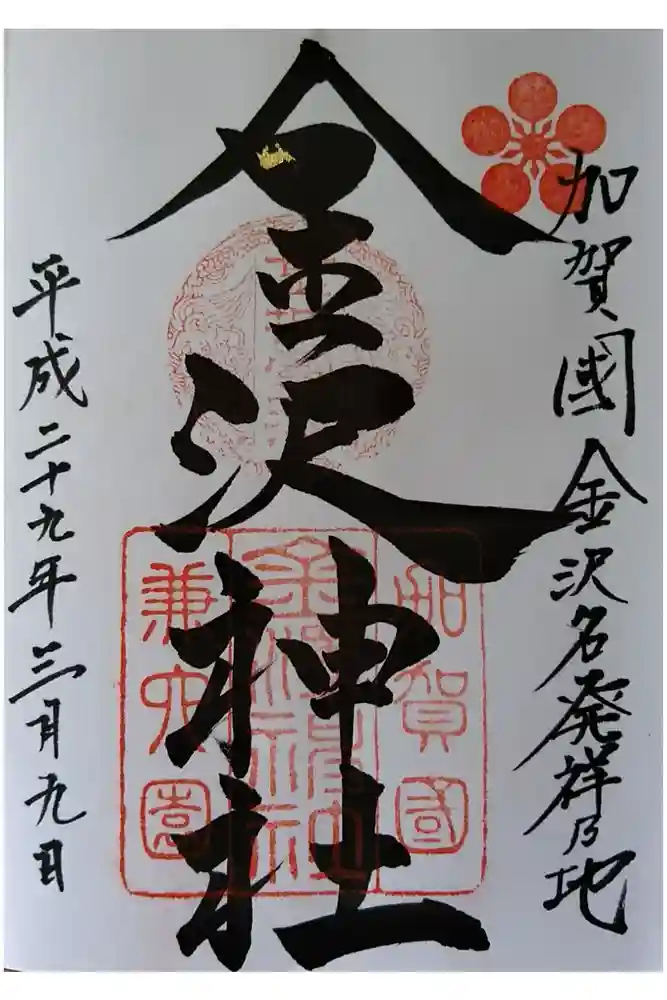 加賀國金沢名発祥乃地
金沢神社
加賀國
金澤神社
兼六園
平成二十九年三月九日